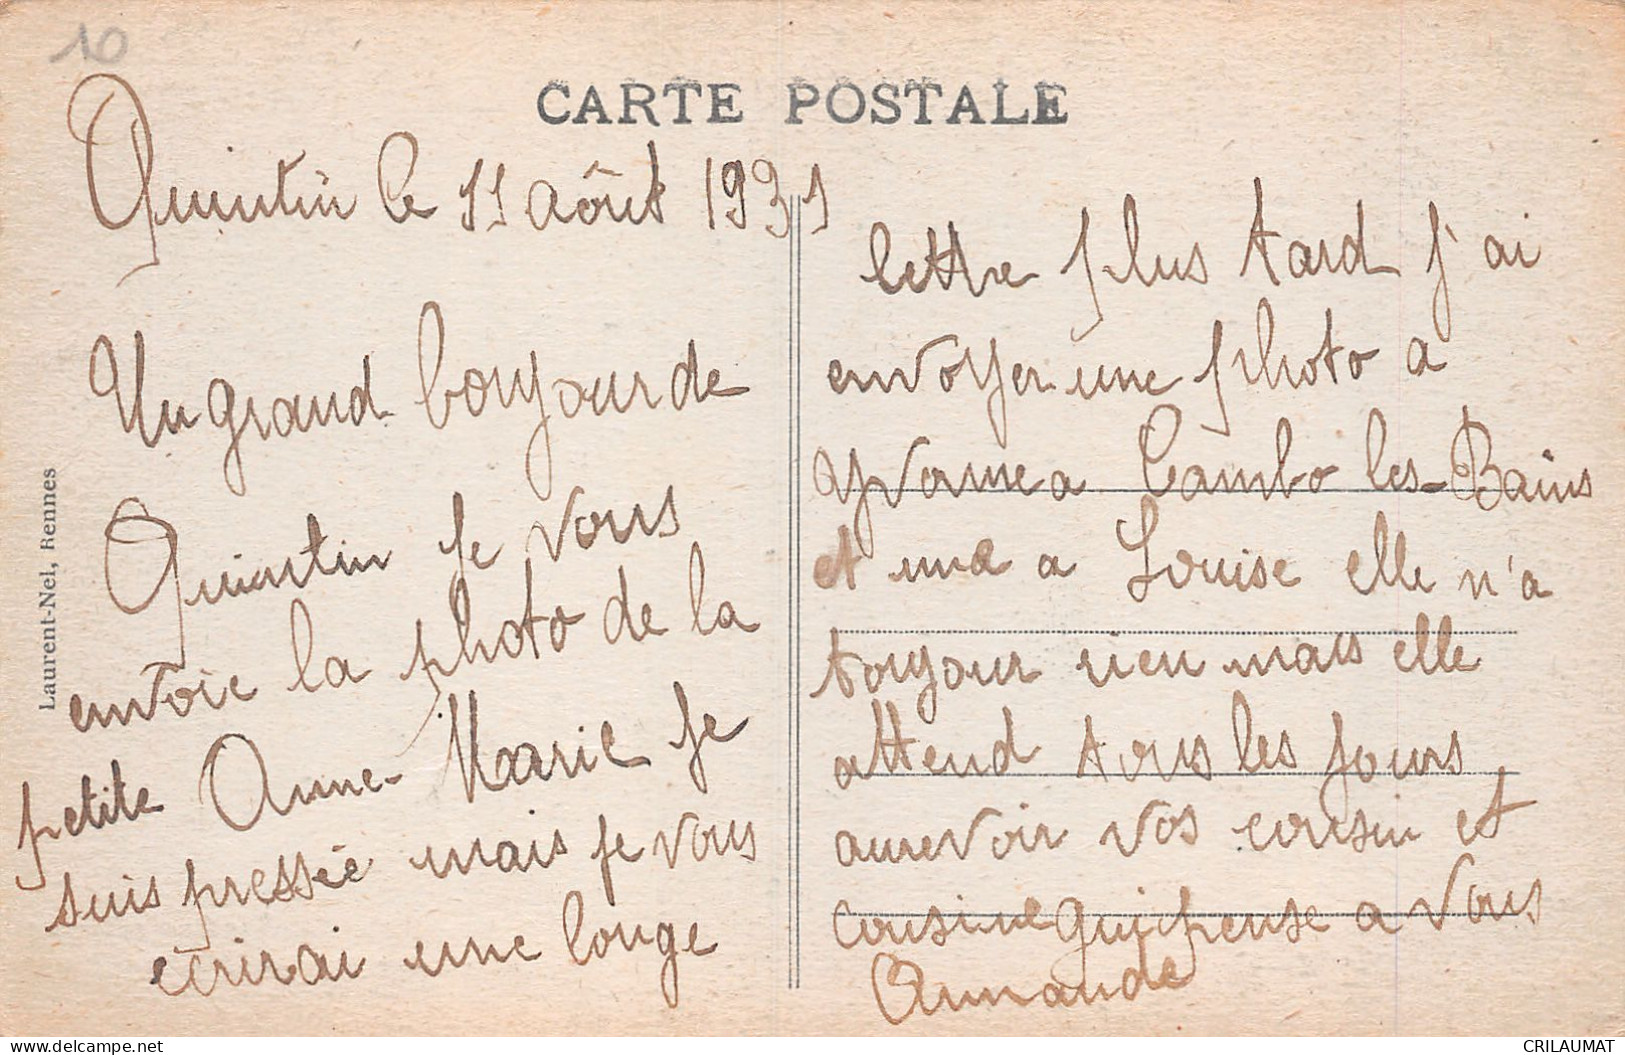 10
CARTE POSTALE
Quintin le 11 août 1931
Un grand bonjour de
Quintin je vous
envoie la photo de la
petite Anne-Marie je
suis pressée mais je vous
écrirai une longe
lettre plus tard j'ai
envoyer une photo a
Yvonne a Cambo les-Bains
et une a Louise elle n'a
toujour rien mais elle
attend tous les jours
aurevoir vos cousin et
cousine qui pense a vous
Armande
Laurent-Nel, Rennes
CRILAUMAT